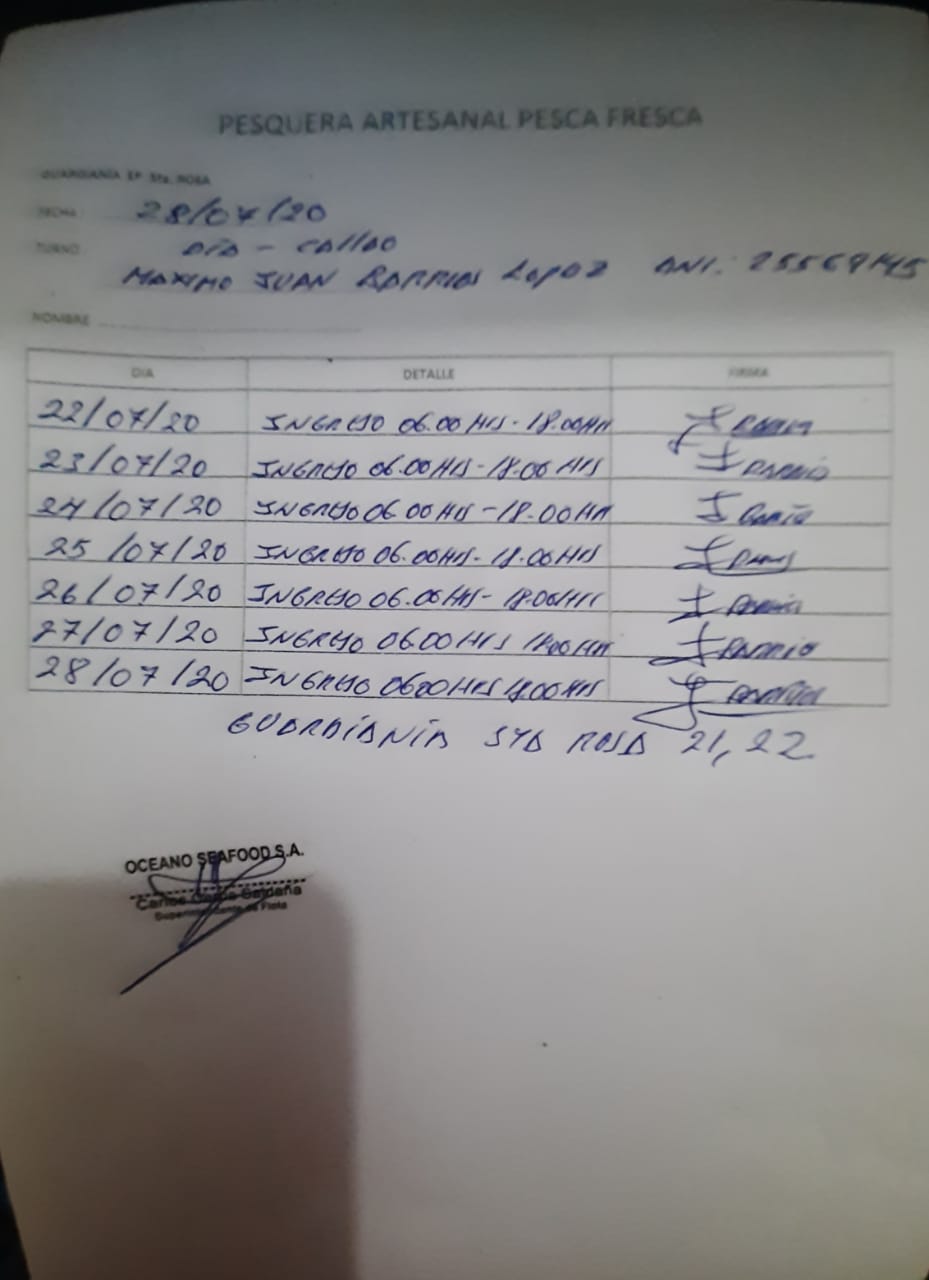 PESQUERA ARTESANAL PESCA FRESCA
GUARDIANÍA EP Sta. ROSA
FECHA: 28/07/20
TURNO: DÍA - CALLAO
MAXIMO JUAN BARRIOS LOPEZ DNI: 25569145
NOMBRE
DIA DETALLE FIRMA
22/07/20 INGRESO 06.00 HRS - 18.00 HR
23/07/20 INGRESO 06.00 HRS - 18.00 HRS
24/07/20 INGRESO 06 00 HRS - 18.00 HR
25/07/20 INGRESO 06.00 HRS - 18.00 HRS
26/07/20 INGRESO 06.00 HRS - 18.00 HRS
27/07/20 INGRESO 06.00 HRS 18.00 HR
28/07/20 INGRESO 0600 HRS 18.00 HRS
GUARDIANÍA STA ROSA 21, 22
OCEANO SEAFOOD S.A.
Carlos Saldaña
Superintendente de Flota